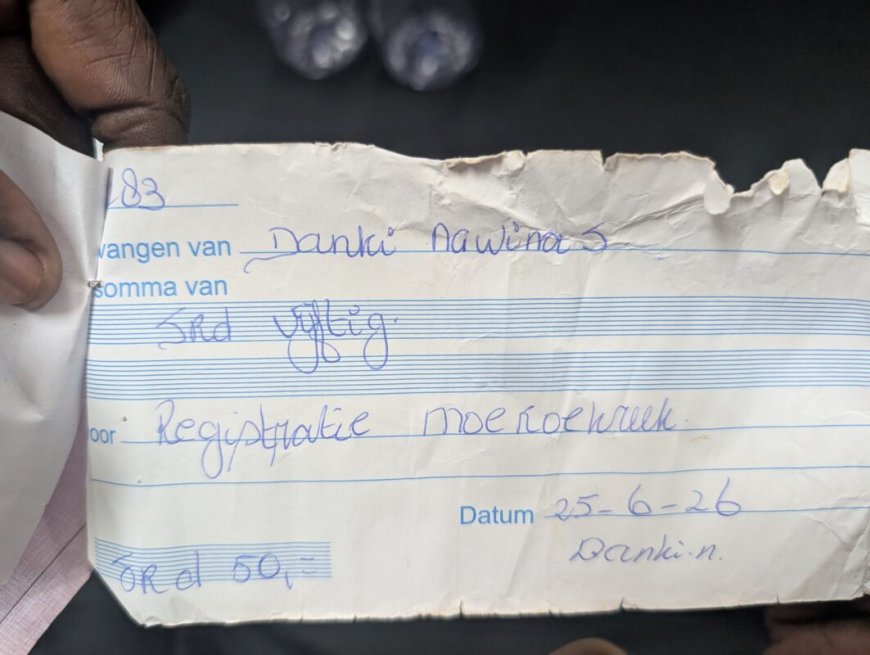 83
vangen van Danki Nawina S
somma van
SRd vijftig.
oor: Registratie moeroekreek.
Datum 25-6-26
Danki.n.
SRd 50,=